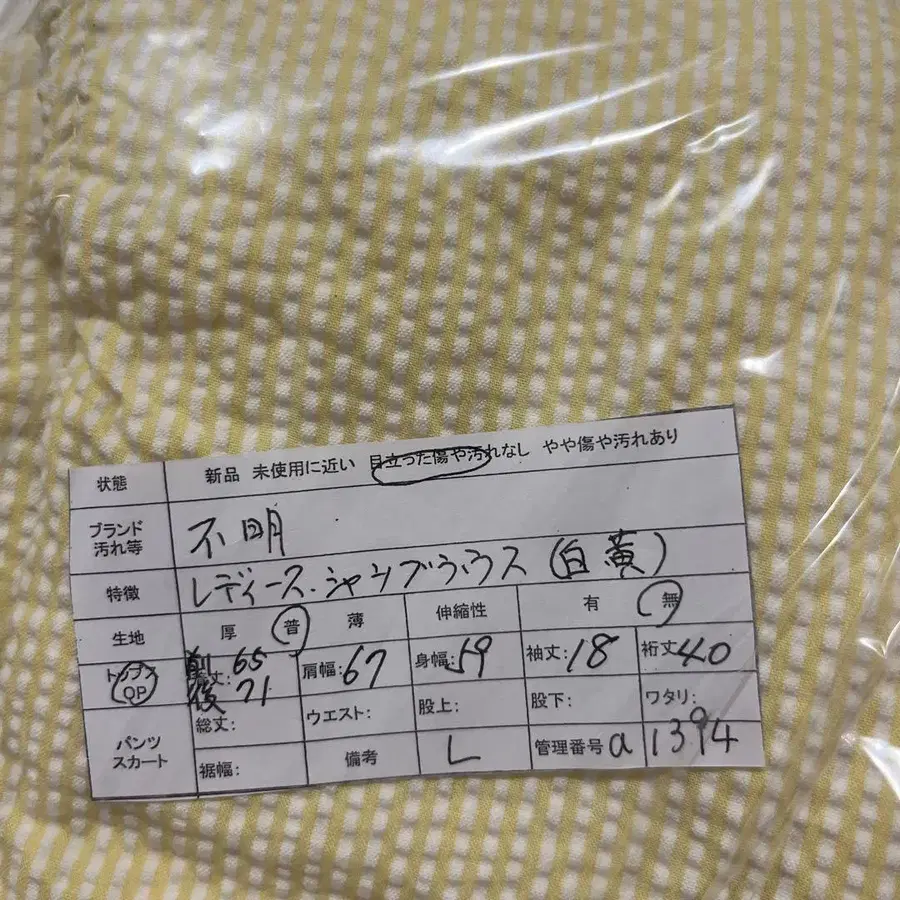 状態 新品 未使用に近い 目立った傷や汚れなし やや傷や汚れあり
ブランド
汚れ等 不明
特徴 レディース.シャツブラウス(白黄)
生地 厚 普 薄 伸縮性 有 無
トップス
OP 前 丈: 65 肩幅: 67 身幅: 59 袖丈: 18 裄丈 40
後 71
パンツ
スカート 総丈: ウエスト: 股上: 股下: ワタリ:
裾幅: 備考 L 管理番号 a 1394